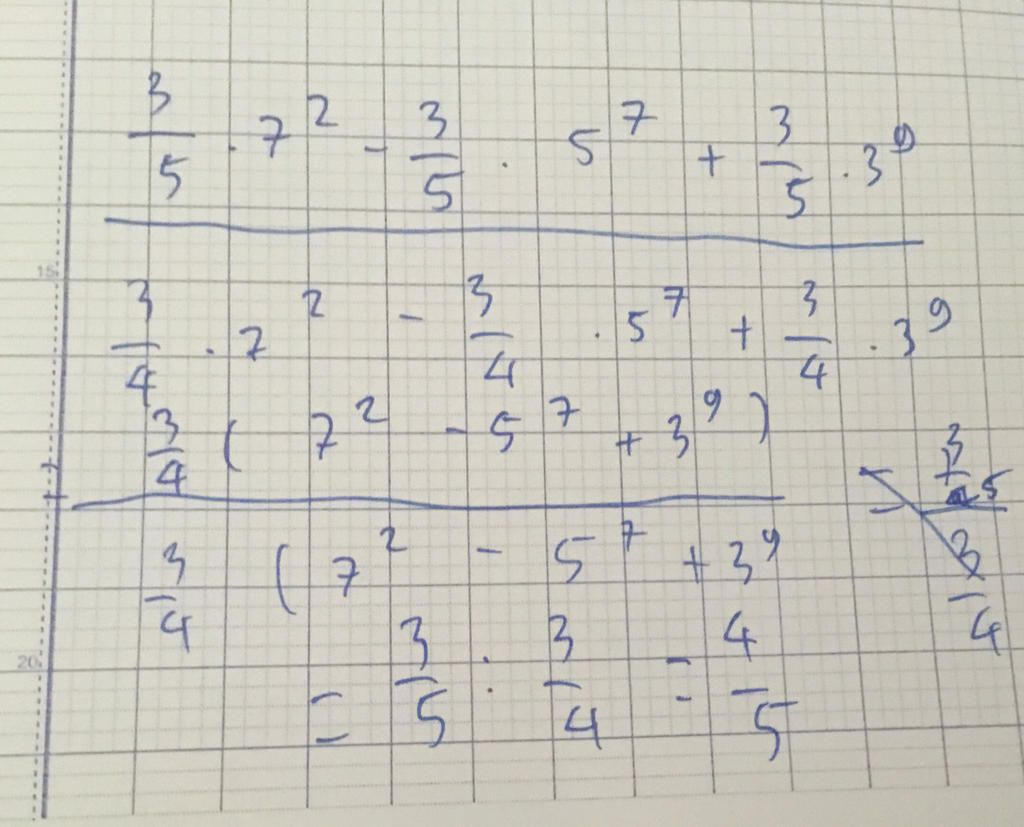 3/5 · 7^2 - 3/5 · 5^7 + 3/5 · 3^9
15
3/4 · 7^2 - 3/4 · 5^7 + 3/4 · 3^9
3/4 ( 7^2 - 5^7 + 3^9 )
3/4 ( 7^2 - 5^7 + 3^9
= 3/5 : 3/4 = 4/5
20